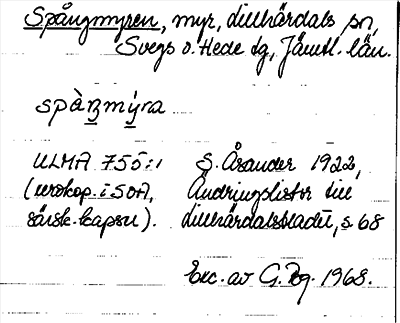 Spångmyren, myr, Lillhärdals sn,
Svegs o. Hede tg, Jämtl. län.
spàŋmýra
ULMA 755:1 S. Åsander 1922,
(xerokop. i SOA, Ändringslistor till
särsk. kapsel). Lillhärdalsbladet, s. 68
Exc. av G. Bg. 1968.